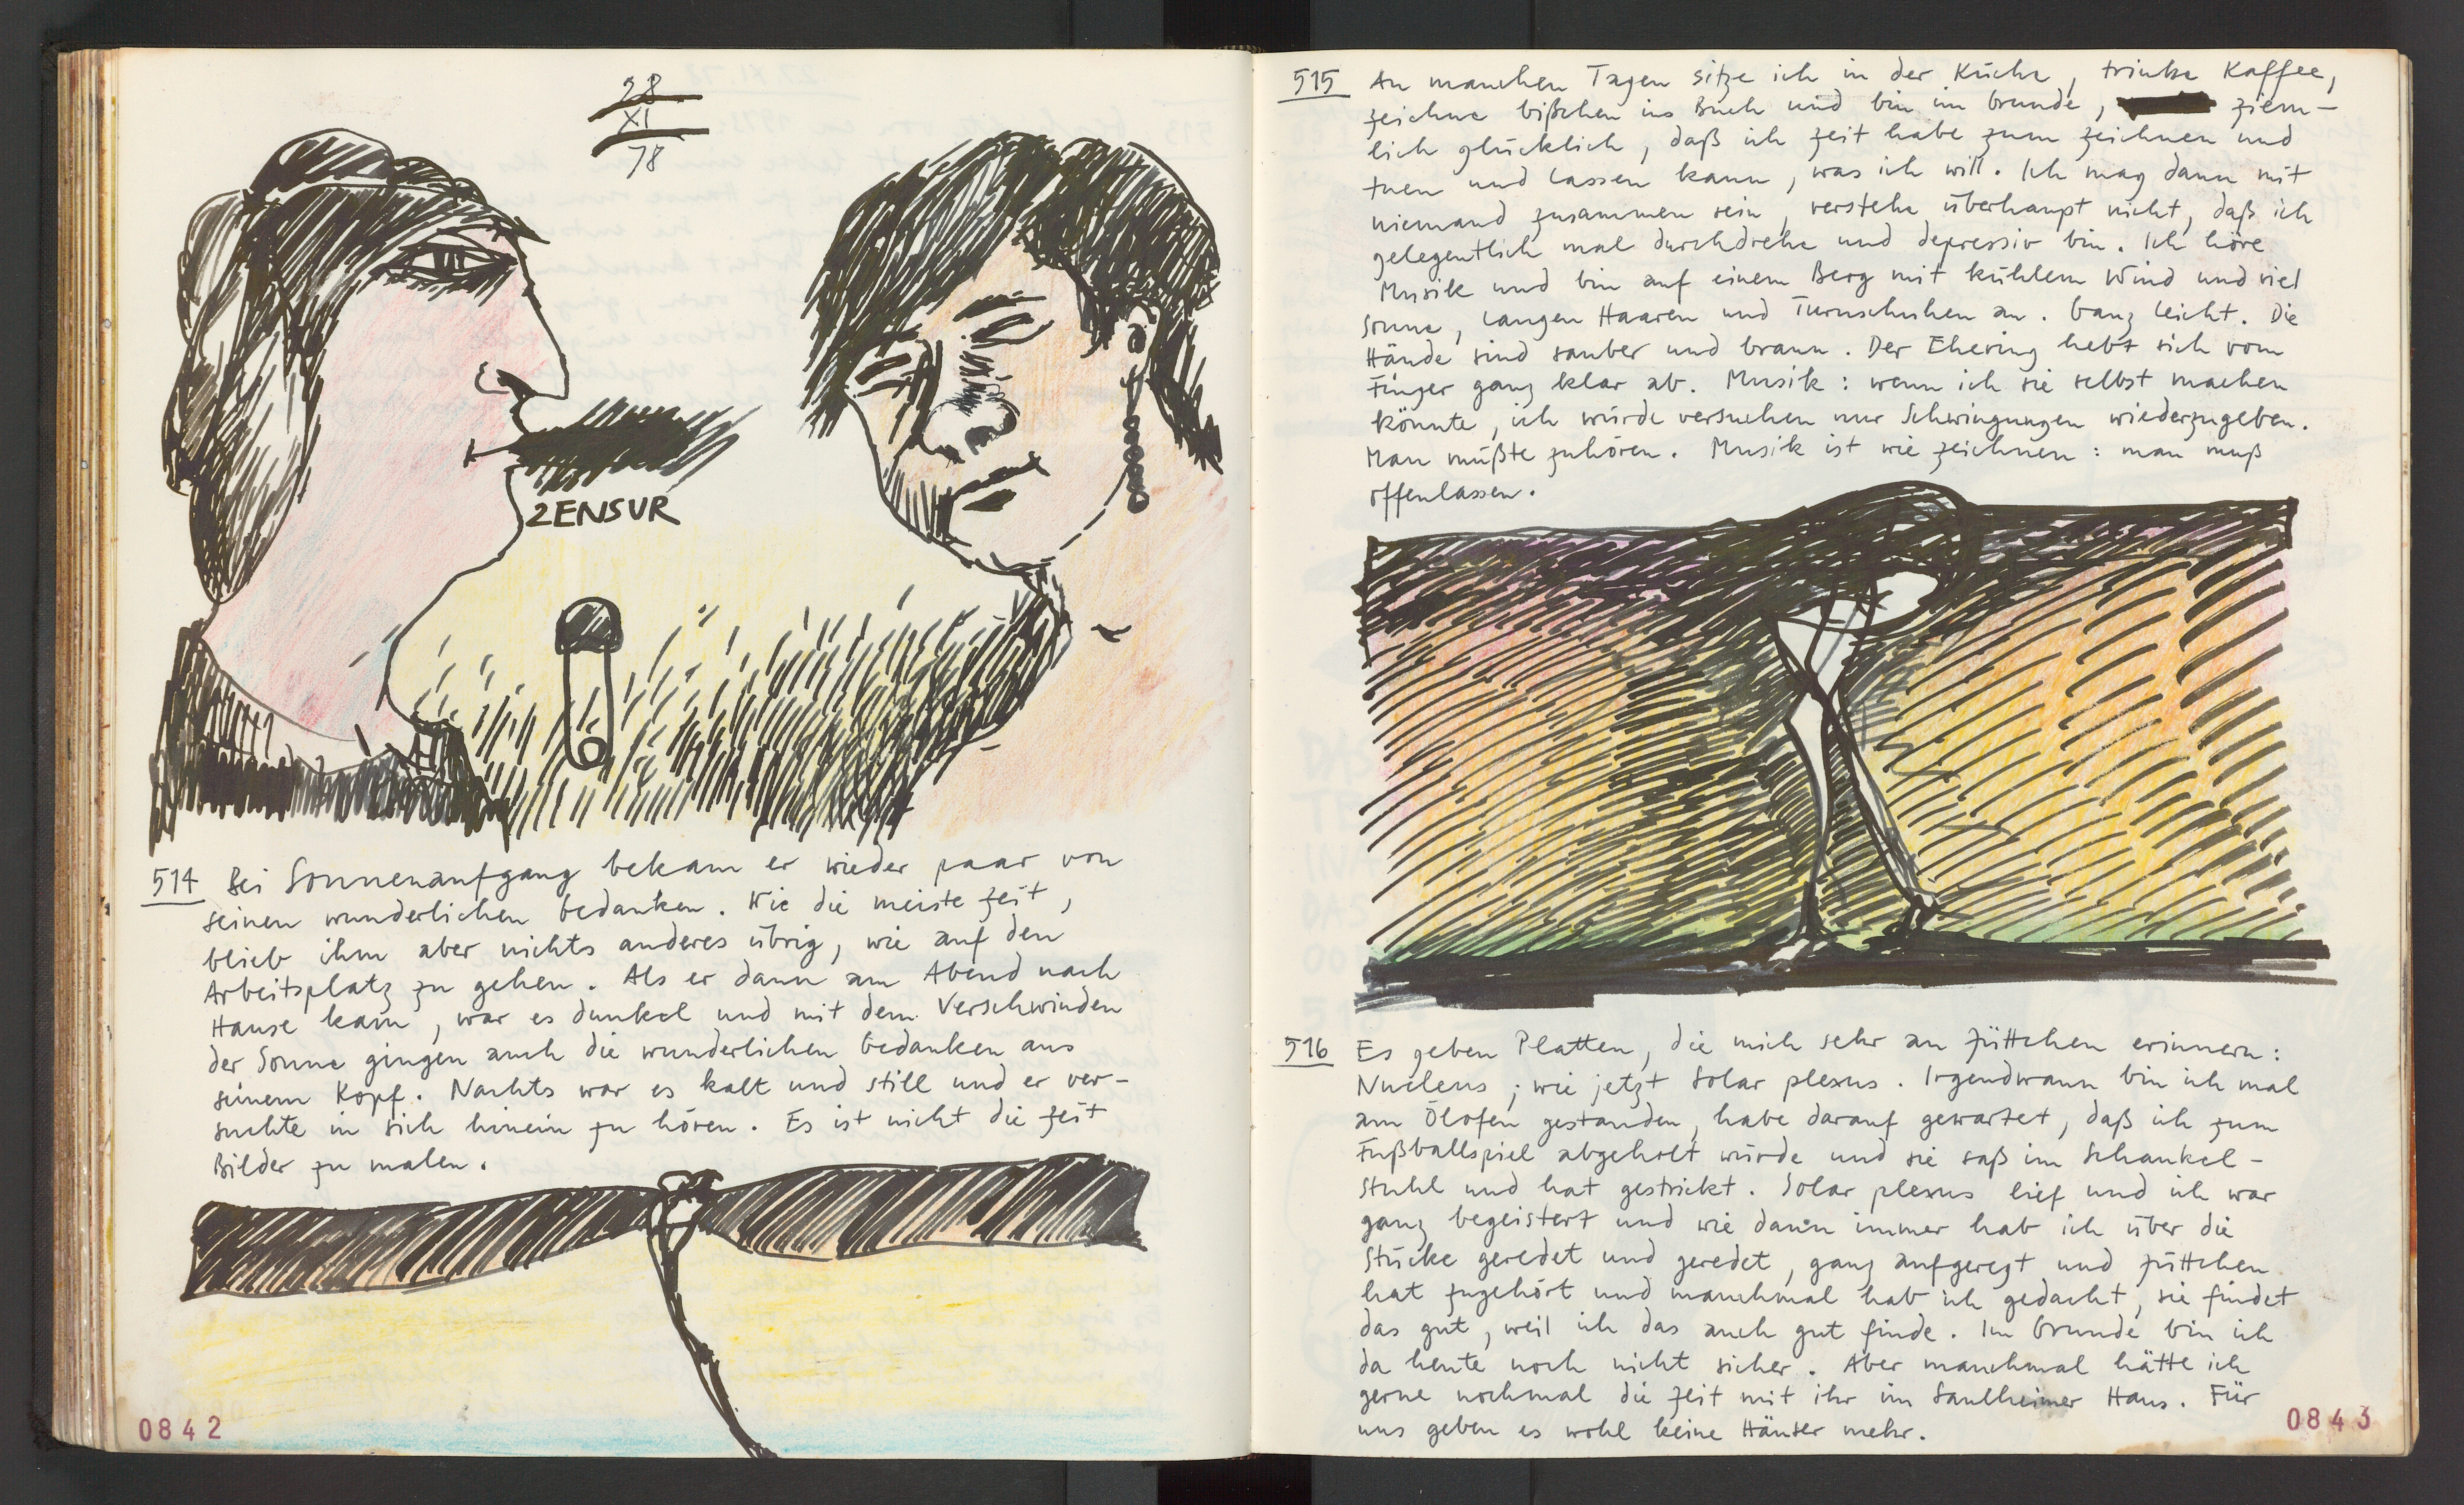 28
XI
78
ZENSUR
514 Bei Sonnenaufgang bekam er wieder paar von
seinen wunderlichen Gedanken. Wie die meiste Zeit,
blieb ihm aber nichts anderes übrig, wie auf den
Arbeitsplatz zu gehen. Als er dann am Abend nach
Hause kam, war es dunkel und mit dem Verschwinden
der Sonne gingen auch die wunderlichen Gedanken aus
seinem Kopf. Nachts war es kalt und still und er ver-
suchte in sich hinein zu hören. Es ist nicht die Zeit
Bilder zu malen.
0842
515 An manchen Tagen sitze ich in der Küche, trinke Kaffee,
zeichne bißchen ins Buch und bin im Grunde, ziem-
lich glücklich, daß ich Zeit habe zum zeichnen und
tuen und lassen kann, was ich will. Ich mag dann mit
niemand zusammen sein, verstehe überhaupt nicht, daß ich
gelegentlich mal durchdrehe und depressiv bin. Ich höre
Musik und bin auf einem Berg mit kühlem Wind und viel
Sonne, langen Haaren und Turnschuhen an. Ganz leicht. Die
Hände sind sauber und braun. Der Ehering hebt sich vom
Finger ganz klar ab. Musik: wenn ich sie selbst machen
könnte, ich würde versuchen nur Schwingungen wiederzugeben.
Man müßte zuhören. Musik ist wie zeichnen: man muß
offenlassen.
516 Es geben Platten, die mich sehr an Jüttchen erinnern:
Nucleus; wie jetzt Solar plexus. Irgendwann bin ich mal
am Ölofen gestanden, habe darauf gewartet, daß ich zum
Fußballspiel abgeholt würde und sie saß im Schaukel-
Stuhl und hat gestrickt. Solar plexus lief und ich war
ganz begeistert und wie dann immer hab ich über die
Stücke geredet und geredet, ganz aufgeregt und Jüttchen
hat zugehört und manchmal hab ich gedacht, sie findet
das gut, weil ich das auch gut finde. Im Grunde bin ich
da heute noch nicht sicher. Aber manchmal hätte ich
gerne nochmal die Zeit mit ihr im Saulheimer Haus. Für
uns geben es wohl keine Häuser mehr.
0843